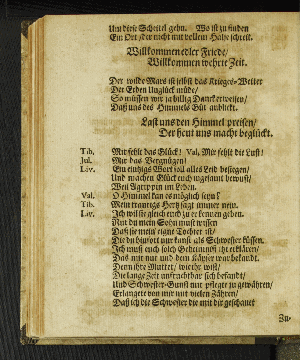 Um diese Scheitel gehn. Wo ist zu finden
Ein Ort / der nicht mit vollem Halse schreit.
Willkommen edler Friede/
Willkommen wehrte Zeit.
Der wilde Mars ist selbst das Krieges-Wetter
Der Erden Unglück müde/
So müssen wir ja billig Danck erweisen/
Daß uns des Himmels Güt anblickt.
Last uns den Himmel preisen/
Der heut uns macht beglückt.
Tib. Mir fehlt das Glück! Val. Mir fehlt die Lust!
Jul. Mir das Vergnügen!
Liv. Ein eintzigs Wort soll alles Leid besiegen/
Und machen Glück euch ingesamt bewust/
Weil Agrippin im Leben.
Val. O Himmel kan es möglich seyn?
Tib. Mein trauriges Hertz sagt immer nein.
Liv. Ich wil sie gleich euch zu erkennen geben.
Nur du mein Sohn must wissen
Daß sie mein eigne Tochter ist/
Die du bißhero nur kanst als Schwester küssen.
Ich muß euch solch Geheimnüß itzt erklären/
Das mir nur und dem Käyser war bekandt.
Denn ihre Mutter/ wie ihr wist/
Die lange Zeit unfruchtbar sich befandt/
Und Schwester-Gunst mir pflegte zu gewähren/
Erlangte von mir mit vielen Zähren/
Daß ich die Schwester die mit dir geschauet